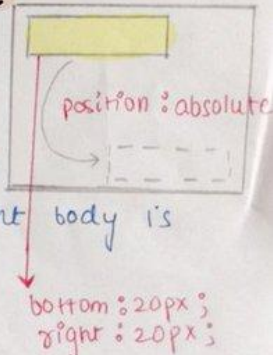 position : absolute
nt body is
bottom : 20px ;
right : 20px ;